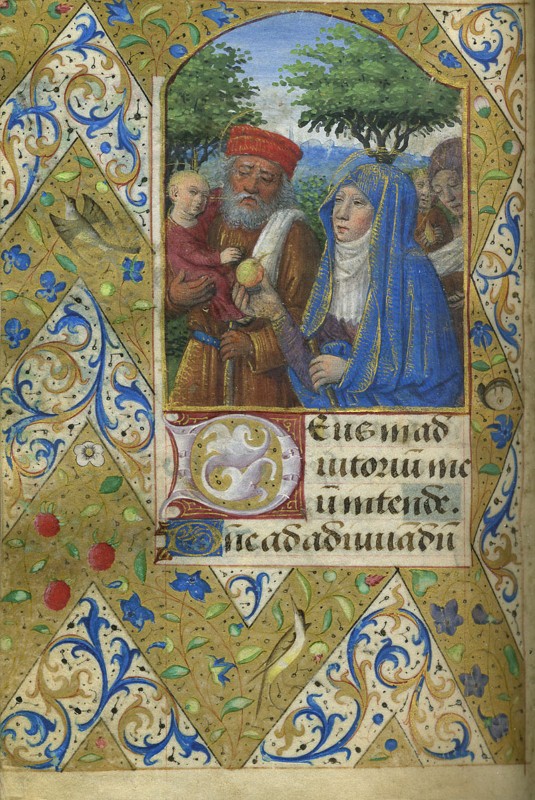 Deus in ad
iutoriū me
ū intende.
Dn̄e ad adiuuādū